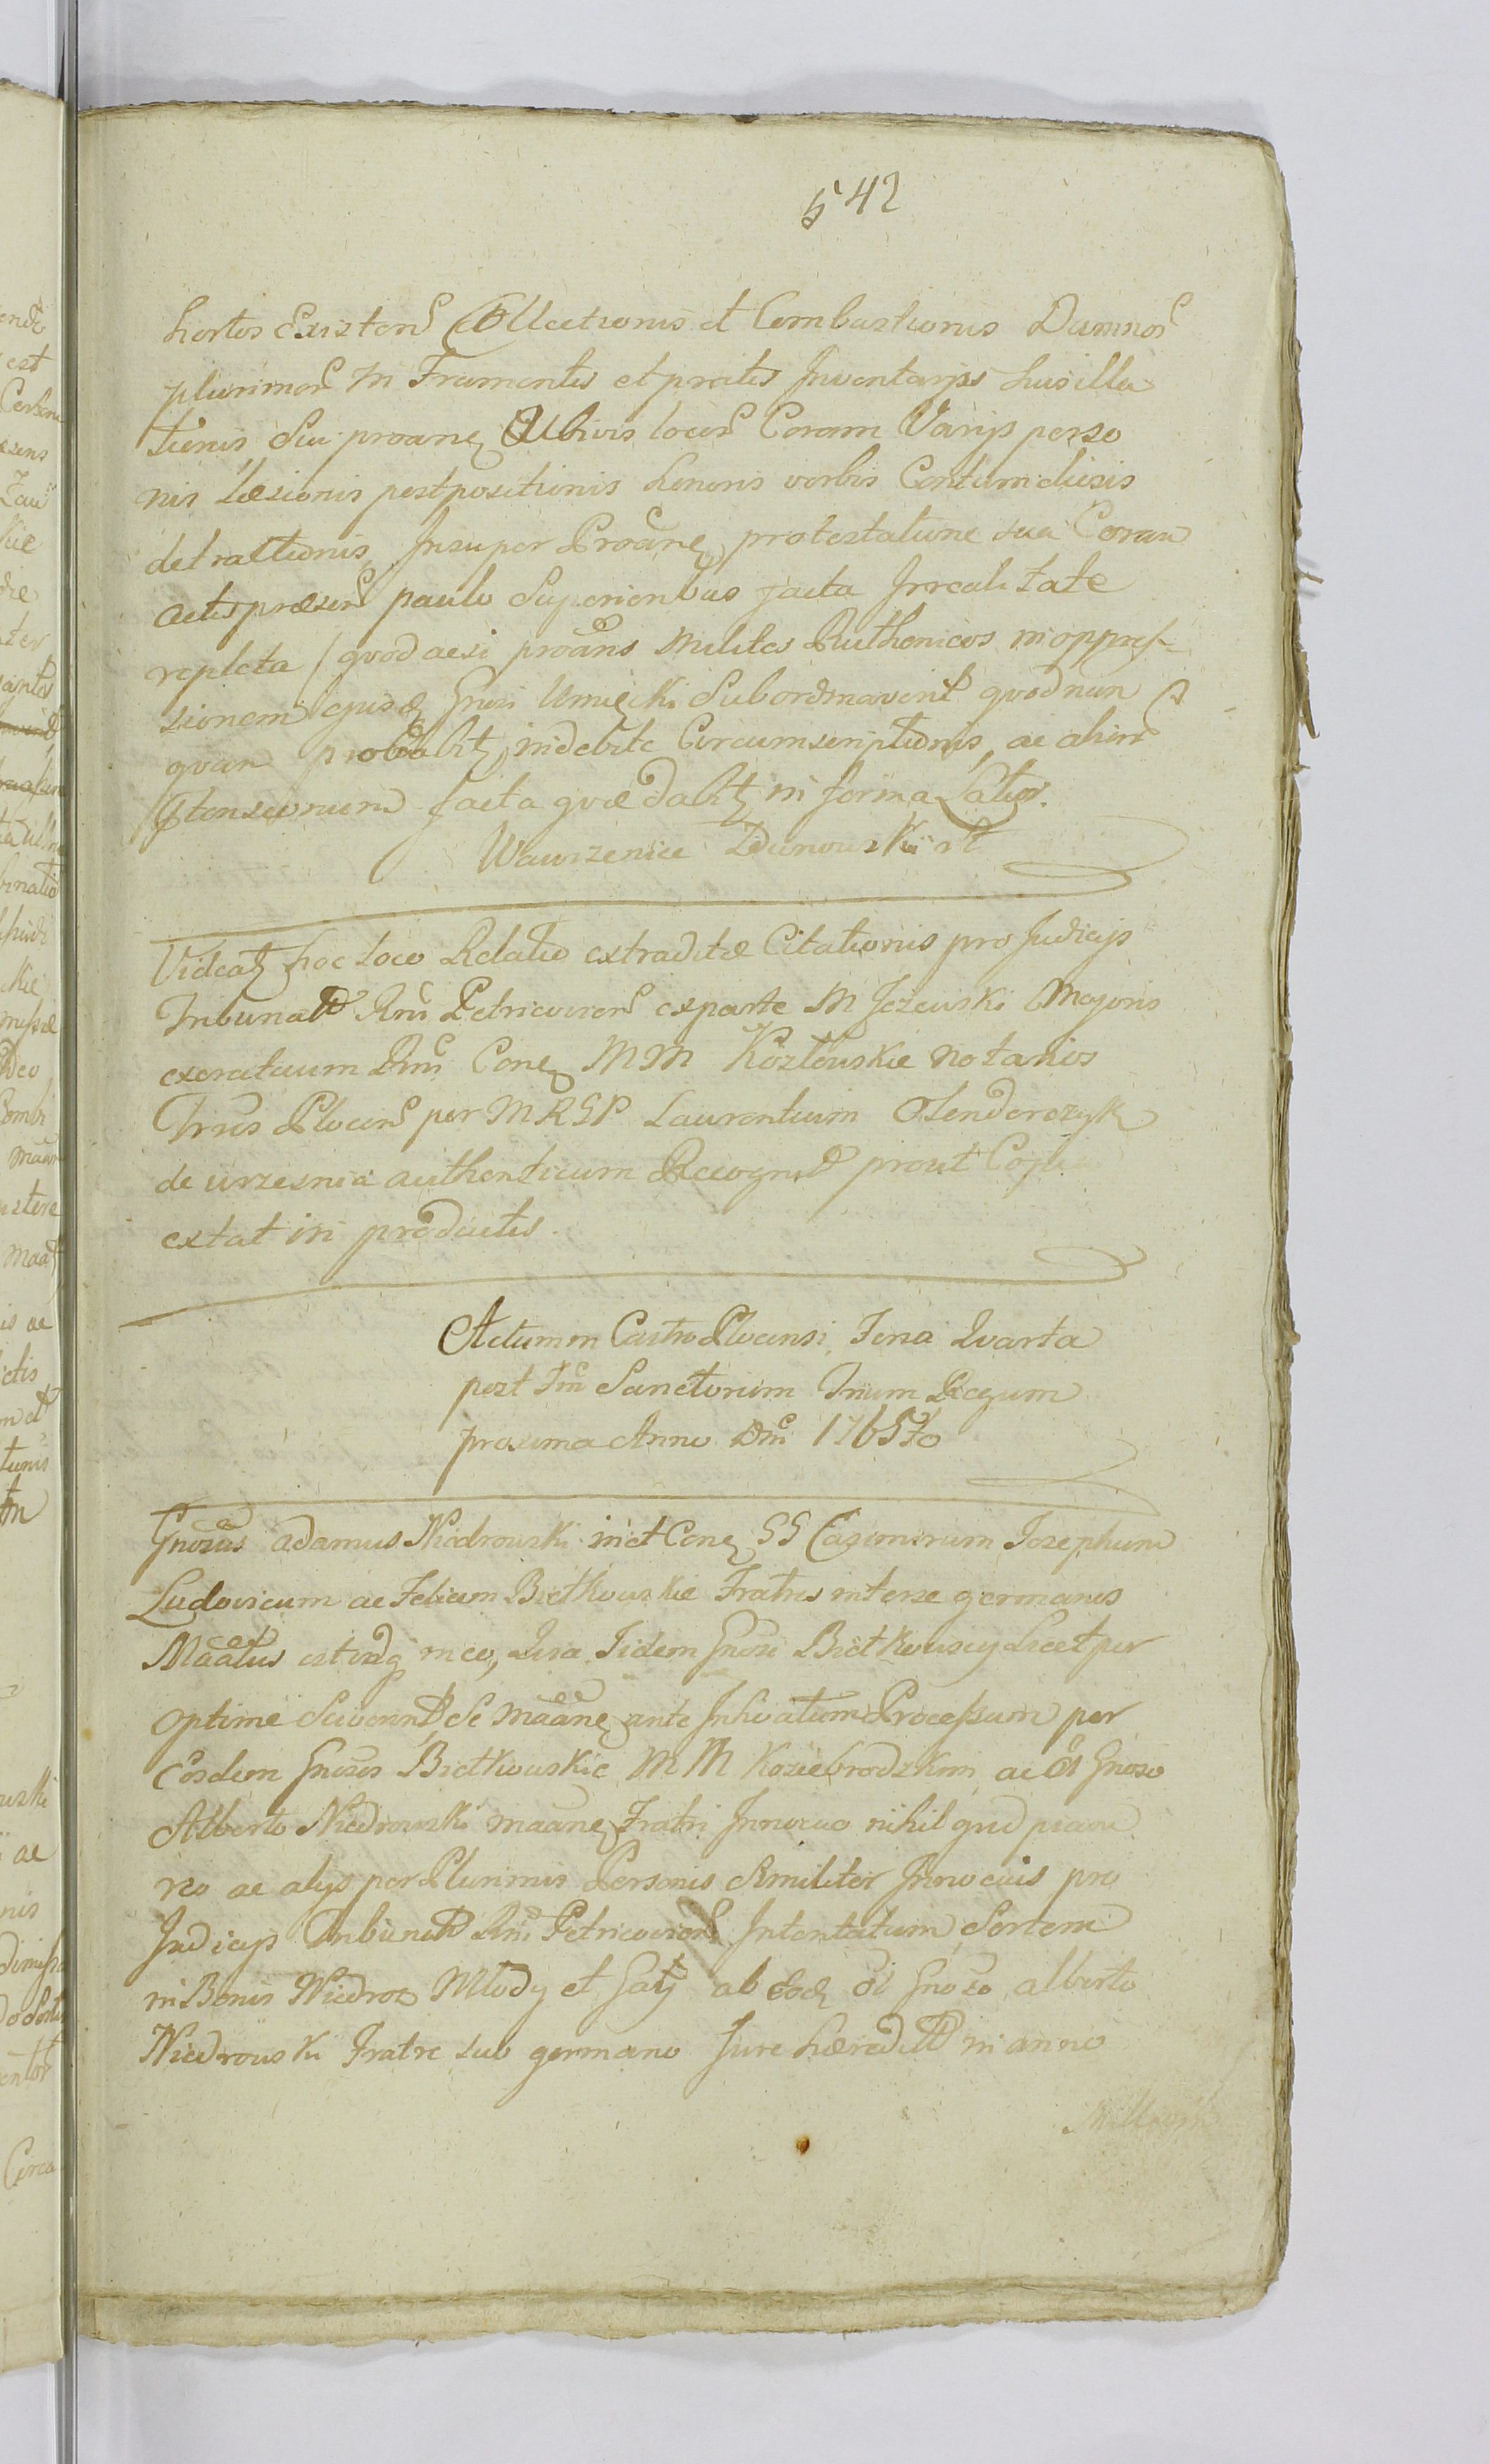 542
hortos Existen Collectionis et Combustionis Damnor
plurimor in Frumentis et pratis Inventarys husilla
tionis Sui proane Ubivis locor Coram Varijs perso
nis Læsionis postpositionis honoris verbis Contumeliosis
detractionis Insuper Proane protestatione sua Coram
actis præsen paulo Superioribus facta Irrealitate
repleta / quod acsi proans Milites Ruthenicos in oppres
sionem ejusd Gnosi Umiecki Subordinaverit quod nun
quam probabit, indebite Circumscriptionis, ac alior
Ptensionum facta quæ dabit in forma Latior.
Wawrzeniec Dunowski
Videat hoc loco Relatio extraditæ Citationis pro Judicijs
Tribunal Rni Petricovien ex parte M Jezewski Majoris
exercituum Rni Cone MM Kozłowskie notarios
Trris Plocen per MRGP Laurentium Olenderczyk
de wrzesnia authenticum Recognit prout Copia
extat in productis.
Actum in Castro Plocensi Feria Quarta
post Fm Sanctorum Trium Regum
proxima Anno Dni 1765to
Gnosus Adamus Niedrowski in et Cone GG Casimirum Josephum
Ludovicum ac Felicem Bietkowskie Fratres inter se germanos
Maatus est indq in eo, Quia Iidem Gnosi Bietkowscy Licet per
optime Sciverint Se Maane ante Inhoatum Processum per
Eosdem Gnosos Bietkowskie MM Koziebrodzkim ac ol Gnoso
Alberto Niedrowski maane Fratri Innocuo nihil
reo ac alys per Plurimis Personis Similiter Innocuis pro
Judicijs Tribunal Rni Petricovien Intentatum Sortem
in Bonis Niedroz Młody et Gaty ab Eod ol Gnoso alberto
Niedrowski Fratre suo germano Jure hæredit in anno